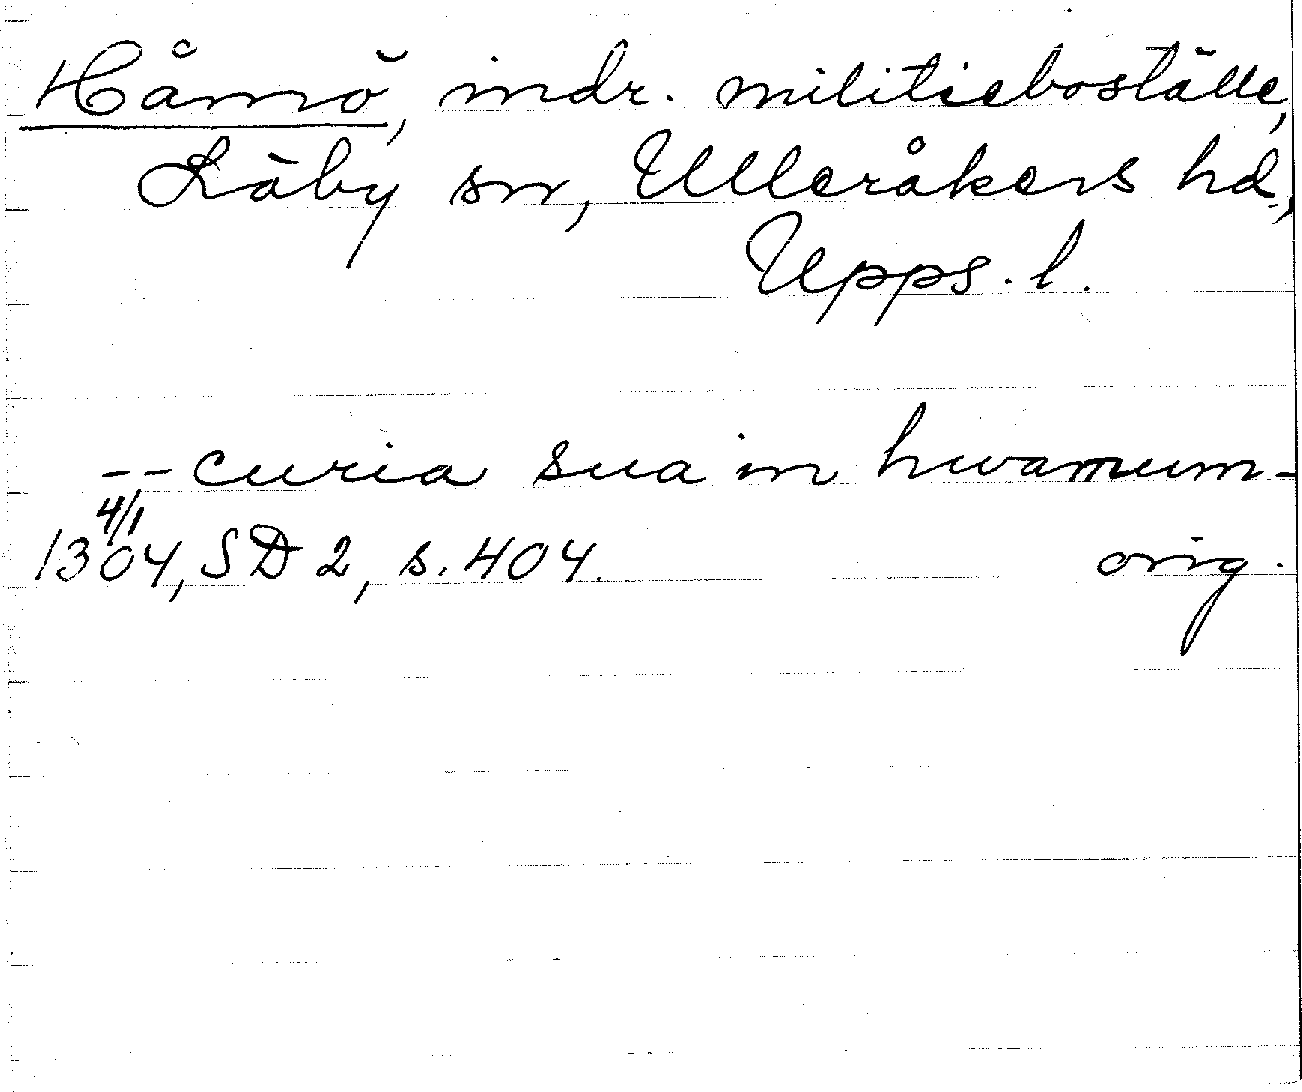 Håmö, indr. militieboställe,
Läby sn, Ulleråkers hd,
Upps. l.
-- curia sua in hwamum -
4/1
1304, SD 2, s. 404. orig.